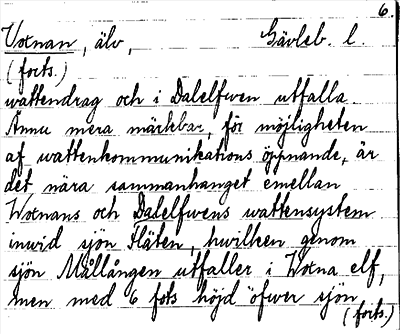 6.
Voxnan, älv, Gävleb. l.
(forts.)
wattendrag och i Dalelfwen utfalla.
Ännu mera märkbar, för möjligheten
af wattenkommunikations öppnande, är
det nära sammanhanget emellan
Woxnans och Dalelfwens wattensystem
inwid sjön Fläten, hwilken genom
sjön Mållången utfaller i Woxna elf,
men med 6 fots höjd öfwer sjön
(forts.)